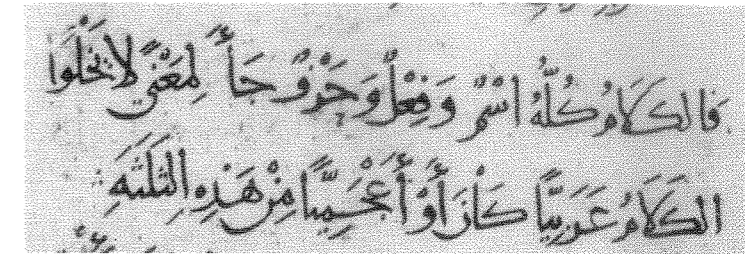 فَالكَلَامُ كُلُّهُ اسْمٌ وَفِعْلٌ وَحَرْفٌ جَأَ لِمَعْنًى لَا يَخْلُوا
الكَلَامُ عَرَبِيًّا كَانَ أَوْ أَعْجَمِيًّا مِنْ هَذِهِ الثَلثَةِ